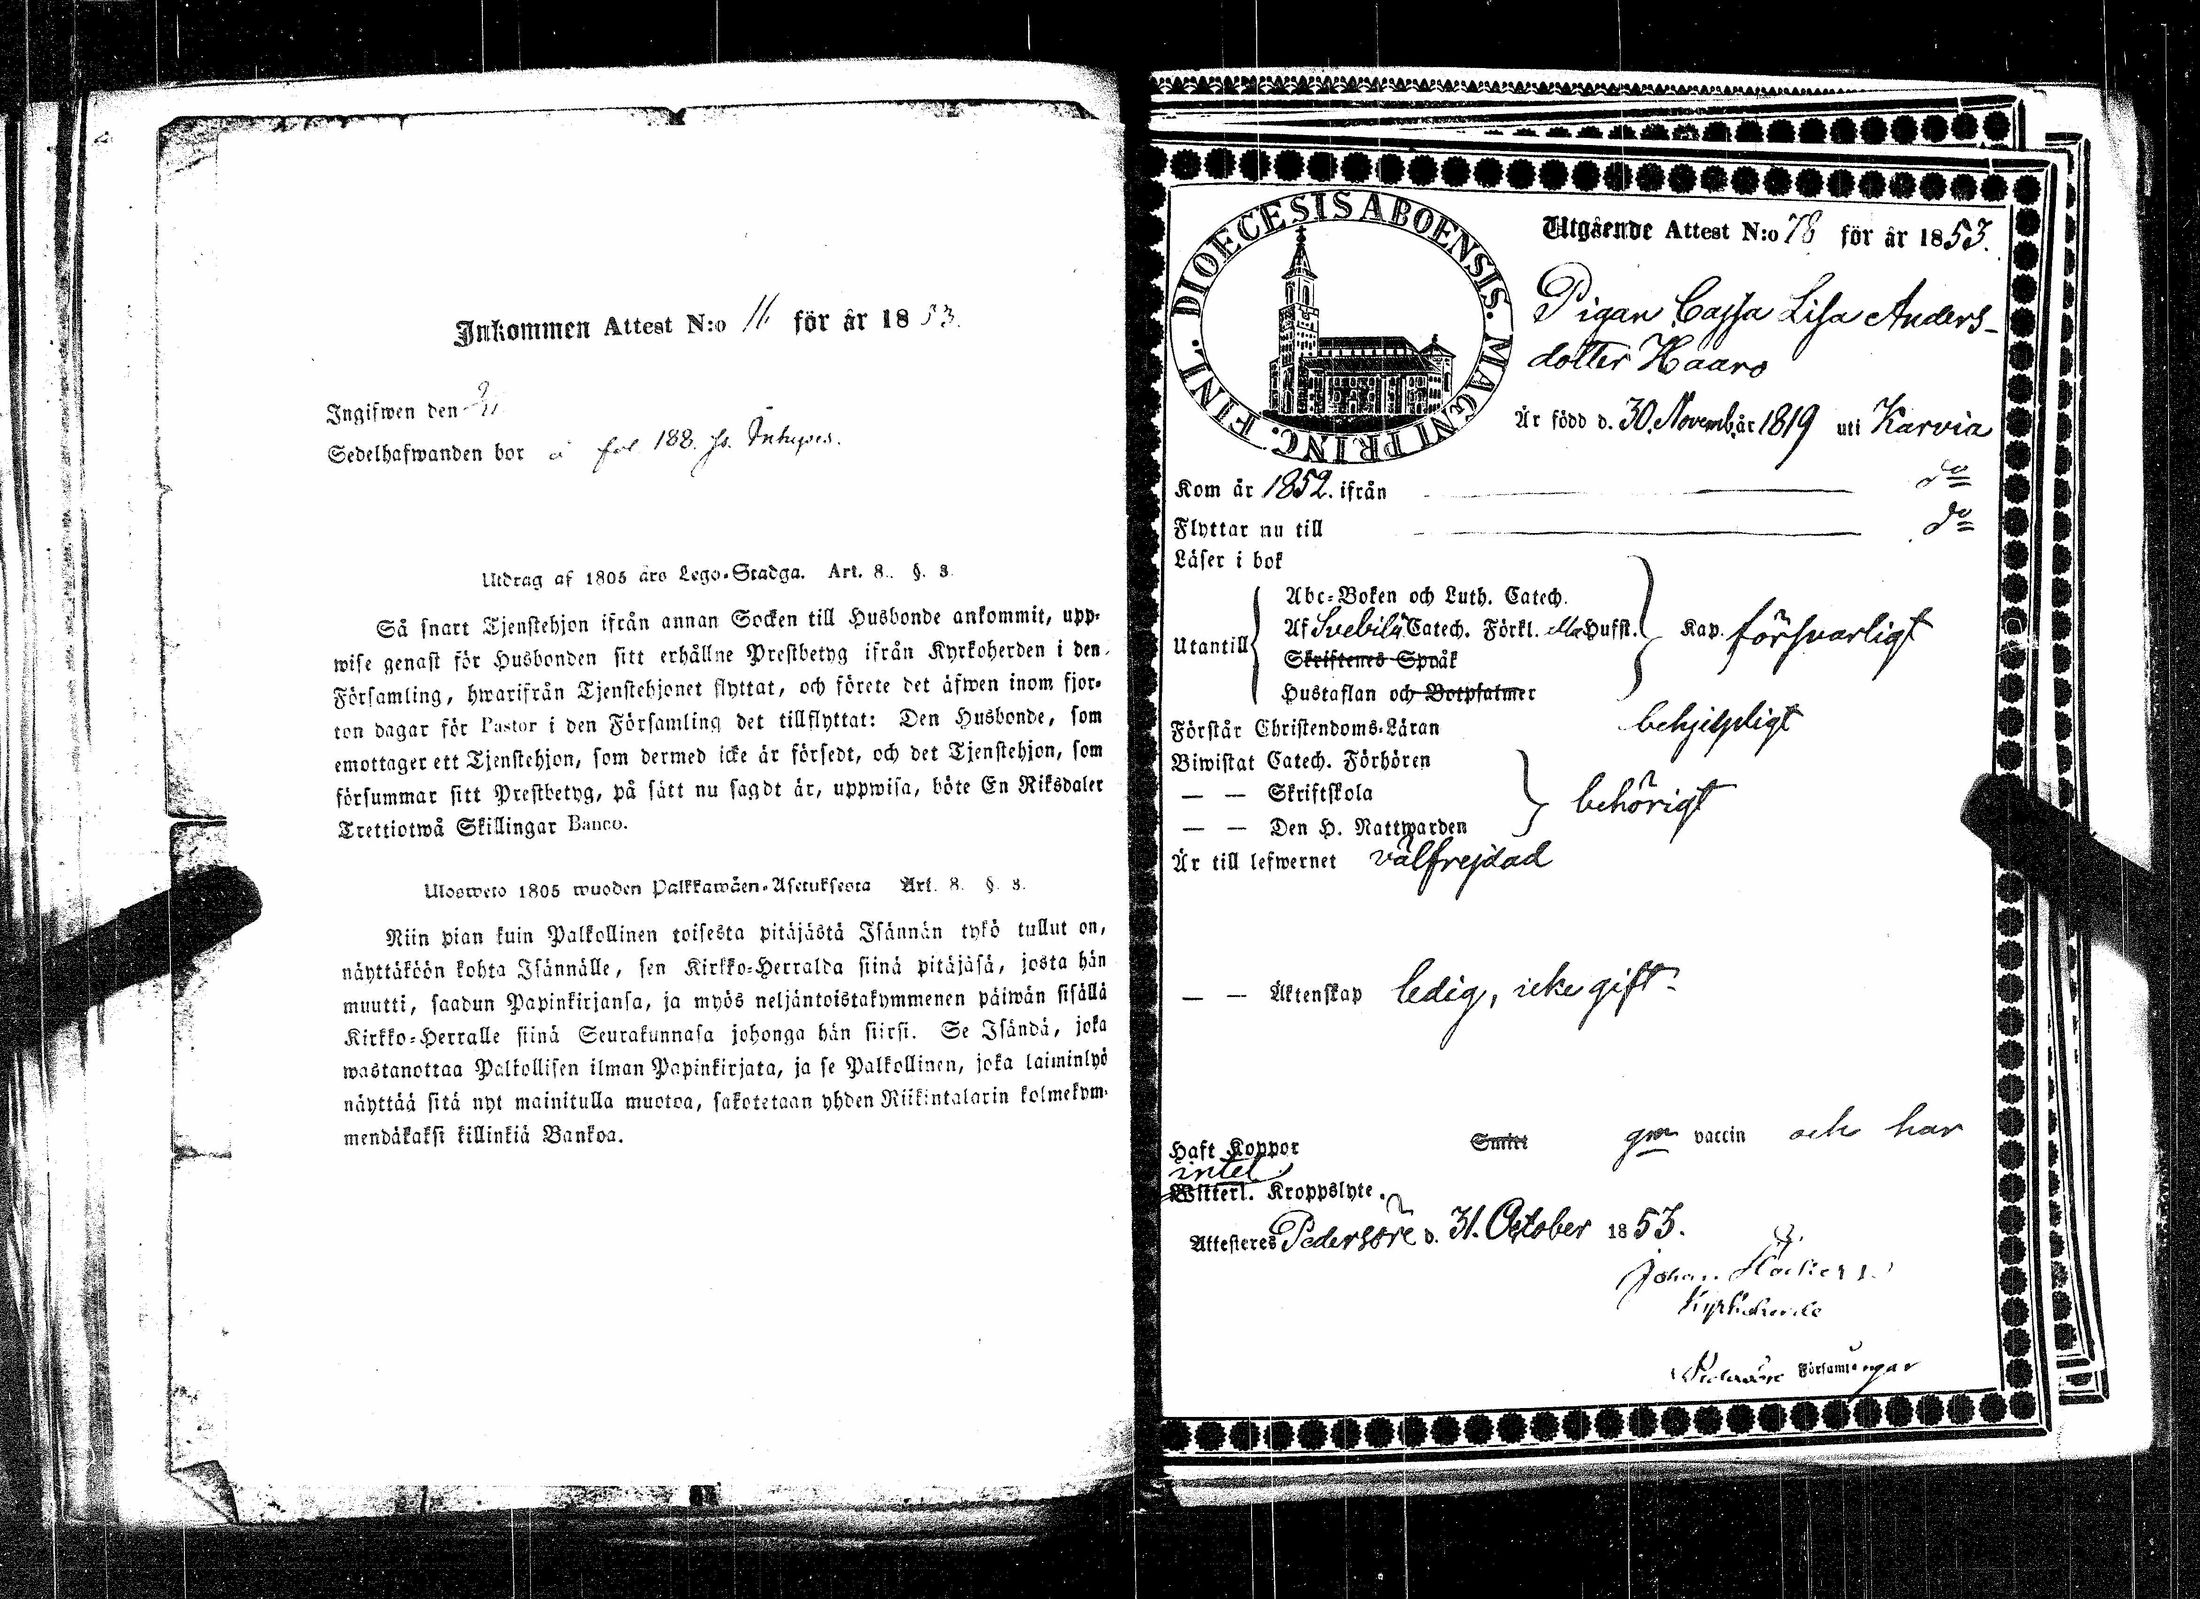 Inkommen Attest N:o 11. för år 1853.
Ingifwen den
Sedelhafwanden bor å fol 188.
Utdrag af 1805 års Lego-Stadga. Art. 8. §. 3.
Så snart Tjenstehjon ifrån annan Socken till Husbonde ankommit, upp-
wise genast för Husbonden sitt erhållne Prestbetyg ifrån Kyrkoherden i den
Församling, hwarifrån Tjenstehjonet flyttat, och förete det äfwen inom fjor-
ton dagar för Pastor i den Församling det tillflyttat: Den Husbonde, som
emottager ett Tjenstehjon, som dermed icke är försedt, och det Tjenstehjon, som
försummar sitt Prestbetyg, på sätt nu sagdt är, uppwisa, böte En Riksdaler
Trettiotwå Skillingar Banco.
Ulosweto 1805 wuoden Palkkawäen-Asetuksesta Art. 8. §. 3.
Niin pian kuin Palkollinen toisesta pitäjästä Isännän tykö tullut on,
näyttäköön kohta Isännälle, sen Kirkko-Herralda siinä pitäjäsä, josta hän
muutti, saadun Papinkirjansa, ja myös neljäntoistakymmenen päiwän sisällä
Kirkko-Herralle siinä Seurakunnasa johonga hän siirsi. Se Isändä, joka
wastanottaa Palkollisen ilman Papinkirjata, ja se Palkollinen, joka laiminlyö
näyttää sitä nyt mainitulla muotoa, sakotetaan yhden Riikintalarin kolmekym-
mendäkaksi killinkiä Bankoa.
DIOECESIS ABOENSIS. MAGNI PRINC. FINL.
Utgående Attest N:o 78 för år 1853.
Pigan Cajsa Lisa Anders-
dotter Haaro
Är född d. 30. Novemb. år 1819 uti Karvia
Kom år 1852. ifrån do
Flyttar nu till do
Läser i bok
Utantill
Abc-Boken och Luth. Catech.
Af Svebilii Catech. Förkl. Hufst. Kap. försvarligt
Skriftenes Språk
Hustaflan och Botpsalmer
Förstår Christendoms-Läran behjelpligt
Biwistat Catech. Förhören
— — Skriftskola behörigt
— — Den H. Nattwarden
Är till lefwernet välfrejdad
— — Äktenskap ledig, icke gift.
Haft Koppor Smitt gm vaccin och har
intet
Witterl. Kroppslyte.
Attesteres Pedersöre d. 31. October 1853.
Johan
Kyrkoherde
Pedersöre Församlingar